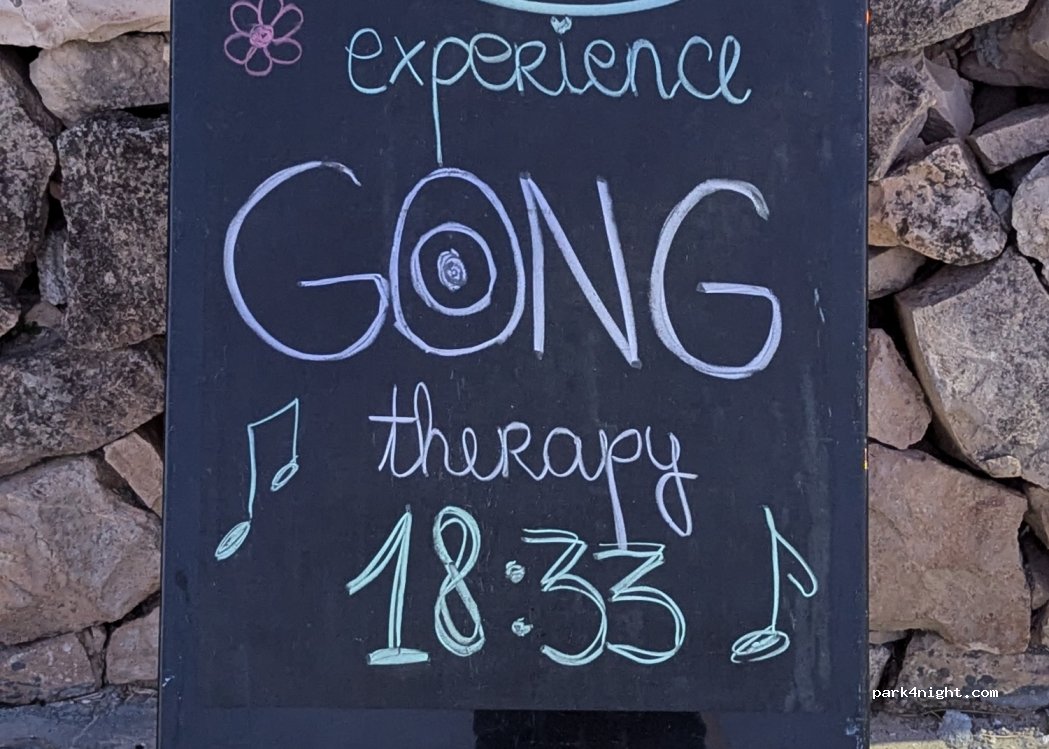 experience
GONG
therapy
18:33
park4night.com